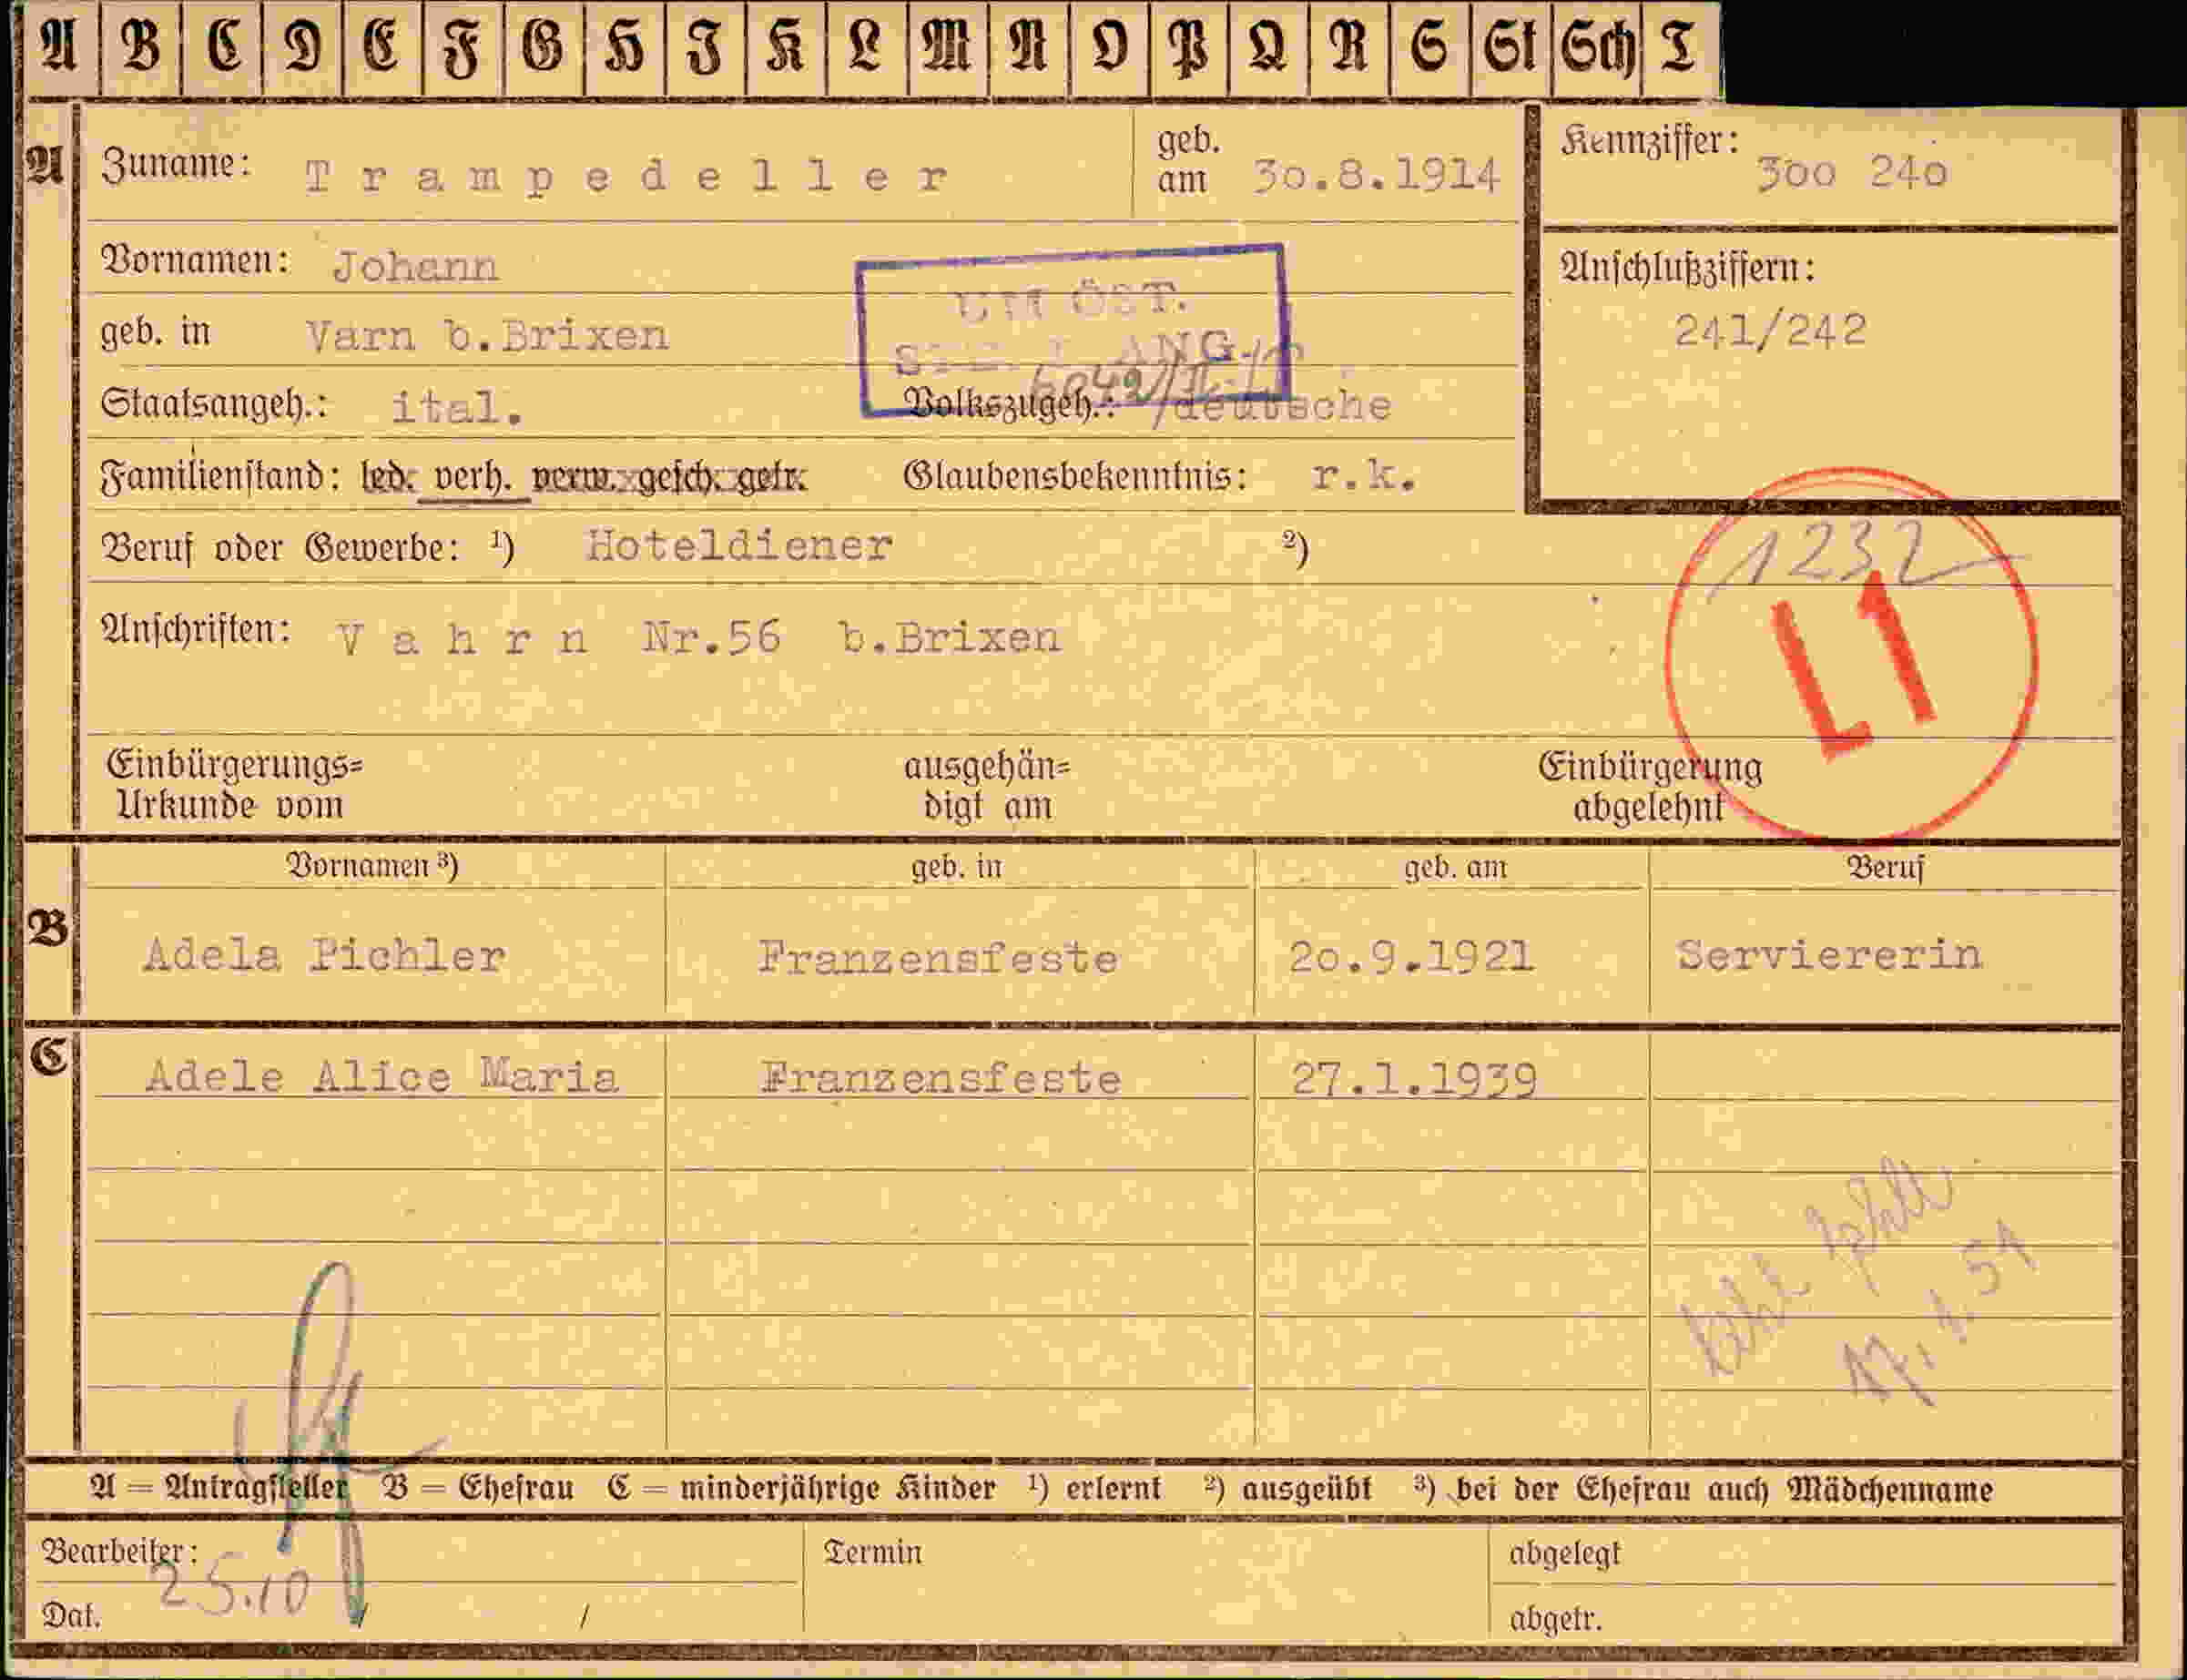 A B C D E F G H I K L M N O P Q R S St Sch T
A
Zuname: Trampedeller
geb. am 30.8.1914
Kennziffer: 300 240
Vornamen: Johann
Anschlußziffern:
241/242
UM ÖST.
ANG.
geb. in Varn b.Brixen
Staatsangeh.: ital.
Volkszugeh.: deutsche
Familienstand: led. verh. verw. gesch. getr.
Glaubensbekenntnis: r.k.
Beruf oder Gewerbe: ¹) Hoteldiener ²)
1232
L1
Anschriften: Vahrn Nr.56 b.Brixen
Einbürgerungs=
Urkunde vom
ausgehän=
digt am
Einbürgerung
abgelehnt
Vornamen ³) geb. in geb. am Beruf
B
Adela Pichler Franzensfeste 20.9.1921 Serviererin
C
Adele Alice Maria Franzensfeste 27.1.1939
17.1.51
A = Antragsteller B = Ehefrau C = minderjährige Kinder ¹) erlernt ²) ausgeübt ³) bei der Ehefrau auch Mädchenname
Bearbeiter:
Termin
abgelegt
25.10
Dat. / /
abgetr.